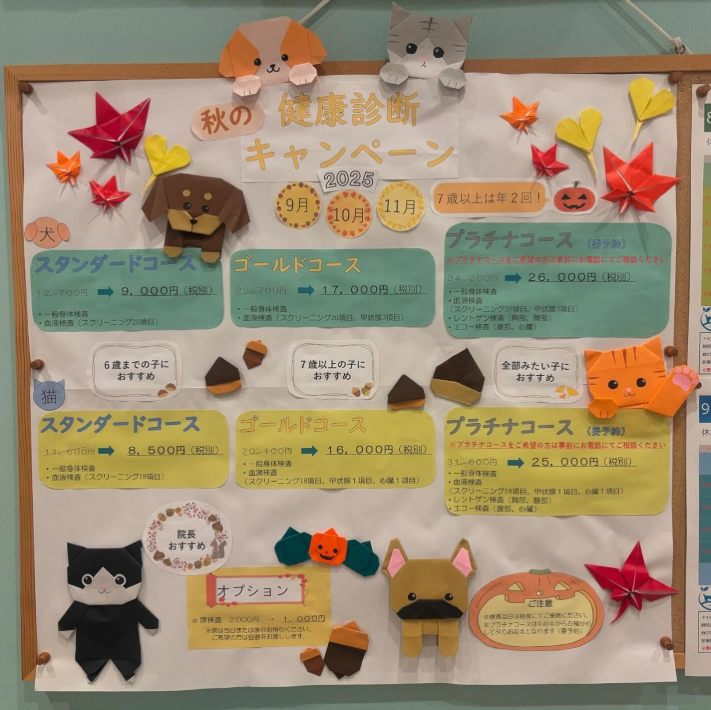 秋の 健康診断
キャンペーン
2025
9月 10月 11月
7歳以上は年2回！
犬
スタンダードコース
12,700円 ➡ 9,000円（税別）
・一般身体検査
・血液検査（スクリーニング20項目）
ゴールドコース
22,700円 ➡ 17,000円（税別）
・一般身体検査
・血液検査（スクリーニング20項目、甲状腺3項目）
プラチナコース（要予約）
※プラチナコースをご希望の方は事前にお電話にてご相談ください
34,200円 ➡ 26,000円（税別）
・一般身体検査
・血液検査
（スクリーニング20項目、甲状腺3項目）
・レントゲン検査（胸部、腹部）
・エコー検査（腹部、心臓）
6歳までの子に
おすすめ
7歳以上の子に
おすすめ
全部みたい子に
おすすめ
猫
スタンダードコース
11,600円 ➡ 8,500円（税別）
・一般身体検査
・血液検査（スクリーニング18項目）
ゴールドコース
20,100円 ➡ 16,000円（税別）
・一般身体検査
・血液検査
（スクリーニング18項目、甲状腺1項目、心臓1項目）
プラチナコース（要予約）
※プラチナコースをご希望の方は事前にお電話にてご相談ください
31,600円 ➡ 25,000円（税別）
・一般身体検査
・血液検査
（スクリーニング18項目、甲状腺1項目、心臓1項目）
・レントゲン検査（胸部、腹部）
・エコー検査（腹部、心臓）
院長
おすすめ
オプション
☆尿検査 2,000円 → 1,000円
※尿は当日または後日お持ちください。
ご希望の方は容器をお渡しします。
ご注意
※検査当日は絶食にてご来院ください。
※プラチナコースは午前中からお預かり
して夕方お迎えとなります（要予約）